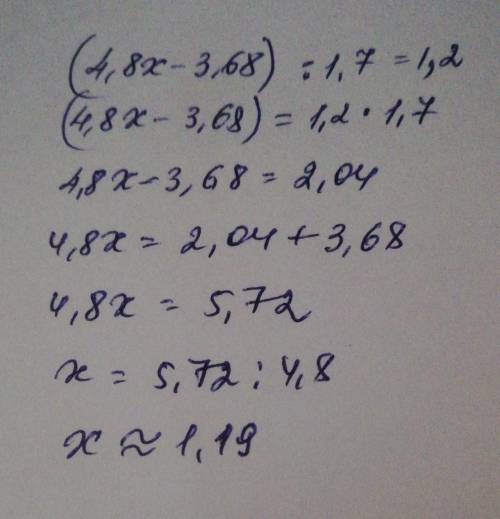 (4,8x - 3,68) : 1,7 = 1,2
(4,8x - 3,68) = 1,2 · 1,7
4,8x - 3,68 = 2,04
4,8x = 2,04 + 3,68
4,8x = 5,72
x = 5,72 : 4,8
x ≈ 1,19